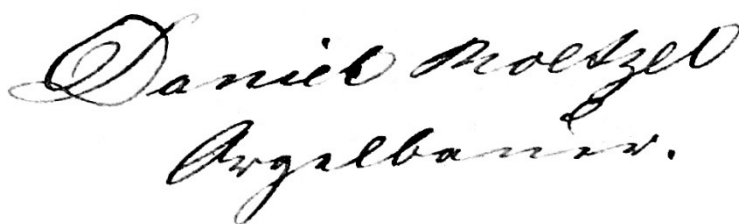 Daniel Roetzel
Orgelbauer.